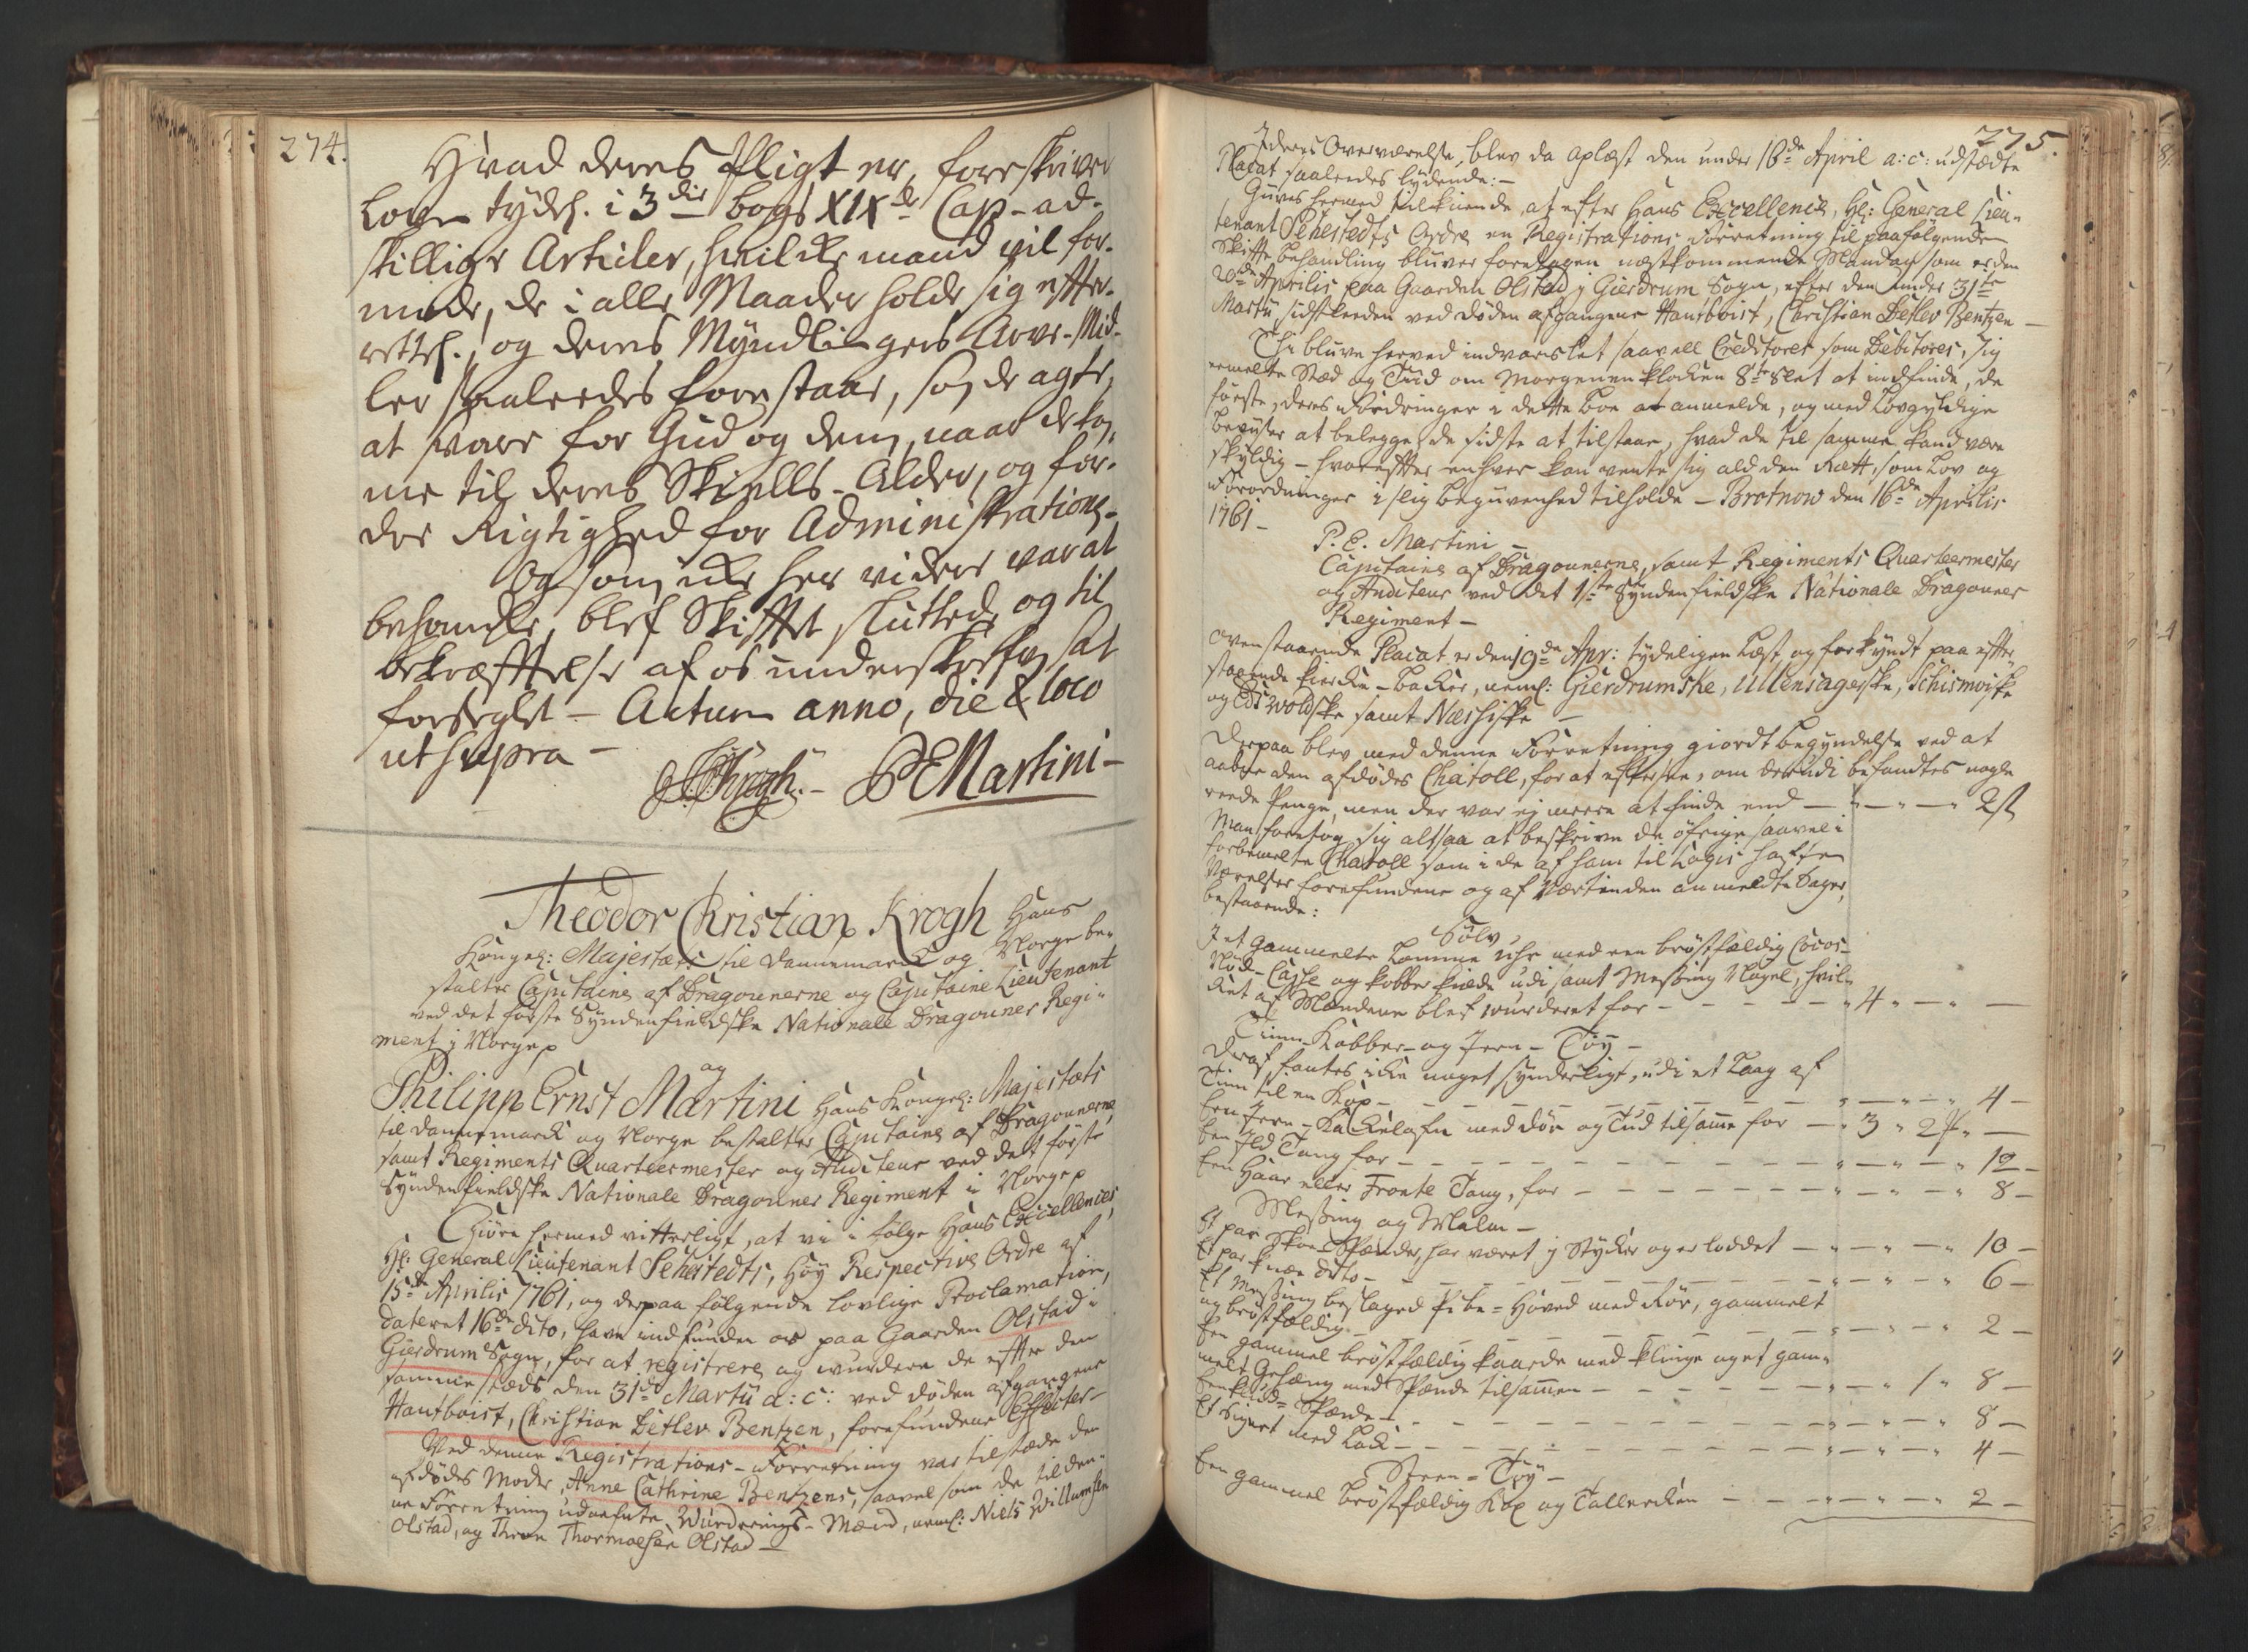 274.
Hvad deres Pligt er, foreskriver
Loven tydel. i 3die bogs XIXde Cap. ad-
skillige Articler, hvilke mand vil for-
mode, de i alle Maader holde sig efter-
rettel., og deres Myndlingers Arve-Mid-
ler saaledes forestaar, som de agte
at svare for Gud og dem, naar de kom-
me til deres Skiells-Alder, og for-
der Rigtighed for Administrationen-
Og som icke her videre var at
behandle, blef Skifftet sluttede og til
bekræfftelse af os underskrefven sat
forseglet - Actum anno, die & loco
ut supra -
TCKrogh.- PEMartini-
Theodor Christian Krogh Hans
Kongel: Majestæts til Dannemarck og Norge be-
stalter Capitaine af Dragounerne og Capitaine Lieutenant
ved det første Syndenfieldske Nationale Dragouner Regi-
ment i Norge
og
Philipp Ernst Martini Hans Kongel: Majestæts
til Dannemarck og Norge bestalter Capitaine af Dragounerne
samt Regiments Quarteermester og Auditeur ved det første
Syndenfieldske Nationale Dragouner Regiment i Norge
Giøre hermed vitterligt, at vi i følge Hans Excellences
Hr: General Lieutenant Sehestedts, Høy Respective Ordre af
15de Aprilis 1761, og derpaa følgende lovlige Proclamation,
dateret 16de dito, have indfunden os paa Gaarden Olstad i
Gierdrum Sogn, for at registrere og wurdere de efter den
samme stæds den 31de Martii a: c: ved døden afgangene
Hautboist, Christian Detlev Bentzen, forefundene Effecter-
Ved denne Registrations-Forretning var tilstæde den
afdødes Moder, Anne Cathrine Bentzens, saavel som de til den-
ne Forretning udnefnte Wurderings-Mænd, neml: Niels Willumsen
Olstad, og Thron Thormoesen Olstad -
275.
I deres Overværelse, blev da oplæst den under 16de April a: c: udstædte
Placat saaledes lydende: -
Gives hermed tilkiende, at efter Hans Excellence, Hr: General Lieu-
tenant Sehestedts Ordre en Registrations Forretning til paafølgende
Skifte behandling bliver foretagen næstkommende Mandag som er den
20de Aprilis paa Gaarden Olstad i Gierdrum Sogn, efter den under 31te
Martii sidstleeden ved døden afgangene Hautboist, Christian Detlev Bentzen -
Thi blive herved indvarslet saavell Creditores som Debitores, sig
ermelte Stæd og Tiid om Morgenen Klocken 8te slet at indfinde, de
første, deres Fordringer i dette Boe at anmelde, og med Lovgyldige
Beviser at belegge, de sidste at tilstaae, hvad de til samme kand være
skyldig - hvorefter enhver kan vente sig ald den Rætt, som Lov og
Forordninger i slig begivenhed tilholde - Brotnow den 16de Aprilis
1761 -
P. E. Martini -
Capitaine af Dragounerne, samt Regiments Quarteermester
og Auditeur ved det 1ste Syndenfieldske Nationale Dragouner
Regiment -
Ovenstaaende Placat er den 19de Apr: tydeligen læst og forkyndt paa efter-
staaende Kircke-Backer, neml: Gierdrumske, Ullensagerske, Schismoiske
og Edtzvoldske samt Næshiske -
Derpaa blev med denne Forretning giordt begyndelse ved at
aabne den afdødes Chatoll, for at eftersee, om derudi befandtes nogle
reede Penge, men der var ej meere at finde end - " - " - " 2ß
Man foretog sig altsaa at beskrive de øfrige saavel i
forbemelte Chatoll som i de af ham til Logis hafte
Værelser forefundene og af Vertinden anmeldte Sager,
bestaaende:
Sølv
1 et gammelt Lomme Uhr med een brøstfældig Cocos-
Nød-Casse og kobber Kiæde udi samt Messing Nøgel, hvil-
ket af Mændene blef wurderet for - - - - - " 4 " - " -
Tinn- Kobber- og Jern-Tøy -
Deraf fantes icke noget synderligt, udi et Laag af
Tinn til en Kop - - - - - - - " - " - " 4 -
Een Jern-Kackelofn med dør og Tud tilsamme for - " 3 " 2 " -
Een Ild Tang for - - - - - - " - " - " 10 -
Een Haar eller Fronte Tang, for - - - - - " - " - " 8 -
Messing og Malm -
Et par Skoe-Spænder, har været i Stycker og er loddet - " - " - " 10 -
Et par Knæ dito - - - - - - - " - " - " 6 -
Et Messing beslaged Pibe-Hoved med Rør, gammelt
og brøstfældig - - - - - - - " - " - " 2 -
Een gammel brøstfældig Kaarde med Klinge og et gam-
melt Gehæng med Spænde tilsammen - - - - " - " 1 " 8 -
Een Hals-Spænde - - - - - - - " - " - " 8 -
Et Signet med Lack - - - - - - " - " - " 4 -
Steen-Tøy -
Een gammel brøstfældig Kop og Tallercken - - " - " - " 2 -